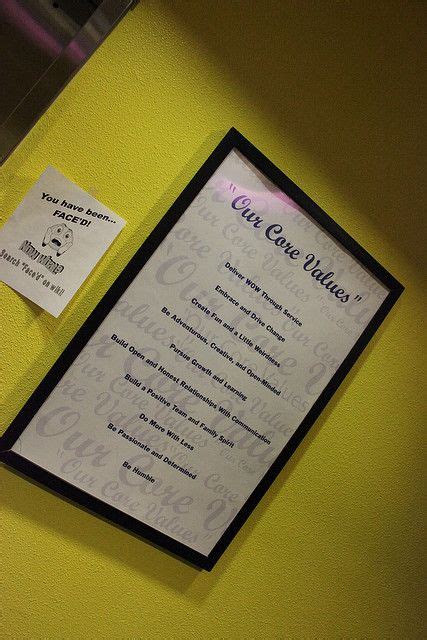 You have been...
FACE'D!
Search "Face'd" on wiki!
"Our Core Values"
Deliver WOW Through Service
Embrace and Drive Change
Create Fun and a Little Weirdness
Be Adventurous, Creative, and Open-Minded
Pursue Growth and Learning
Build Open and Honest Relationships With Communication
Build a Positive Team and Family Spirit
Do More With Less
Be Passionate and Determined
Be Humble